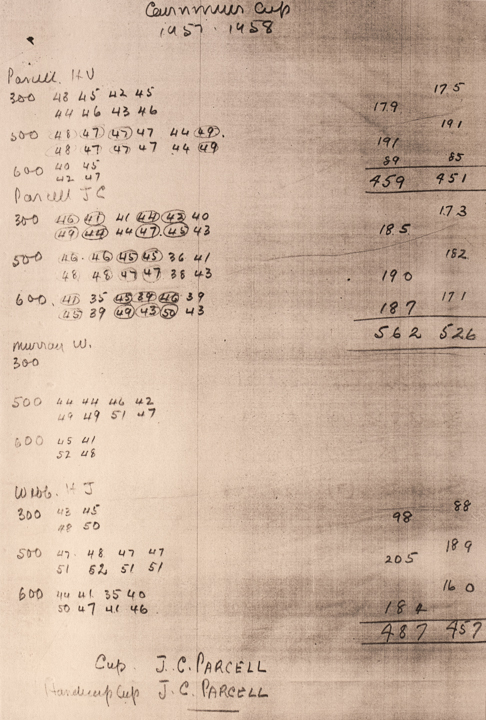 Cup
1957 - 1958
Parcell. H V
300 48 45 42 45 175
44 46 43 46 179
500 48 47 47 47 44 49. 191
48 47 47 47 44 49 191
600 40 45 89 85
42 47
459 451
Parcell J C
300 46 41 41 44 42 40 173
49 44 44 47 45 43 185
500 46 46 45 45 36 41 182
48 48 47 47 38 43 190
600. 41 35 45 39 46 39 171
45 39 49 43 50 43 187
562 526
Murray W.
300
500 44 44 46 42
49 49 51 47
600 45 41
52 48
Webb. H J
300 43 45 88
48 50 98
500 47. 48 47 47 189
51 52 51 51 205
600 44 41 35 40 160
50 47 41 46 184
487 457
Cup. J. C. PARCELL
Handicap Cup J. C. PARCELL